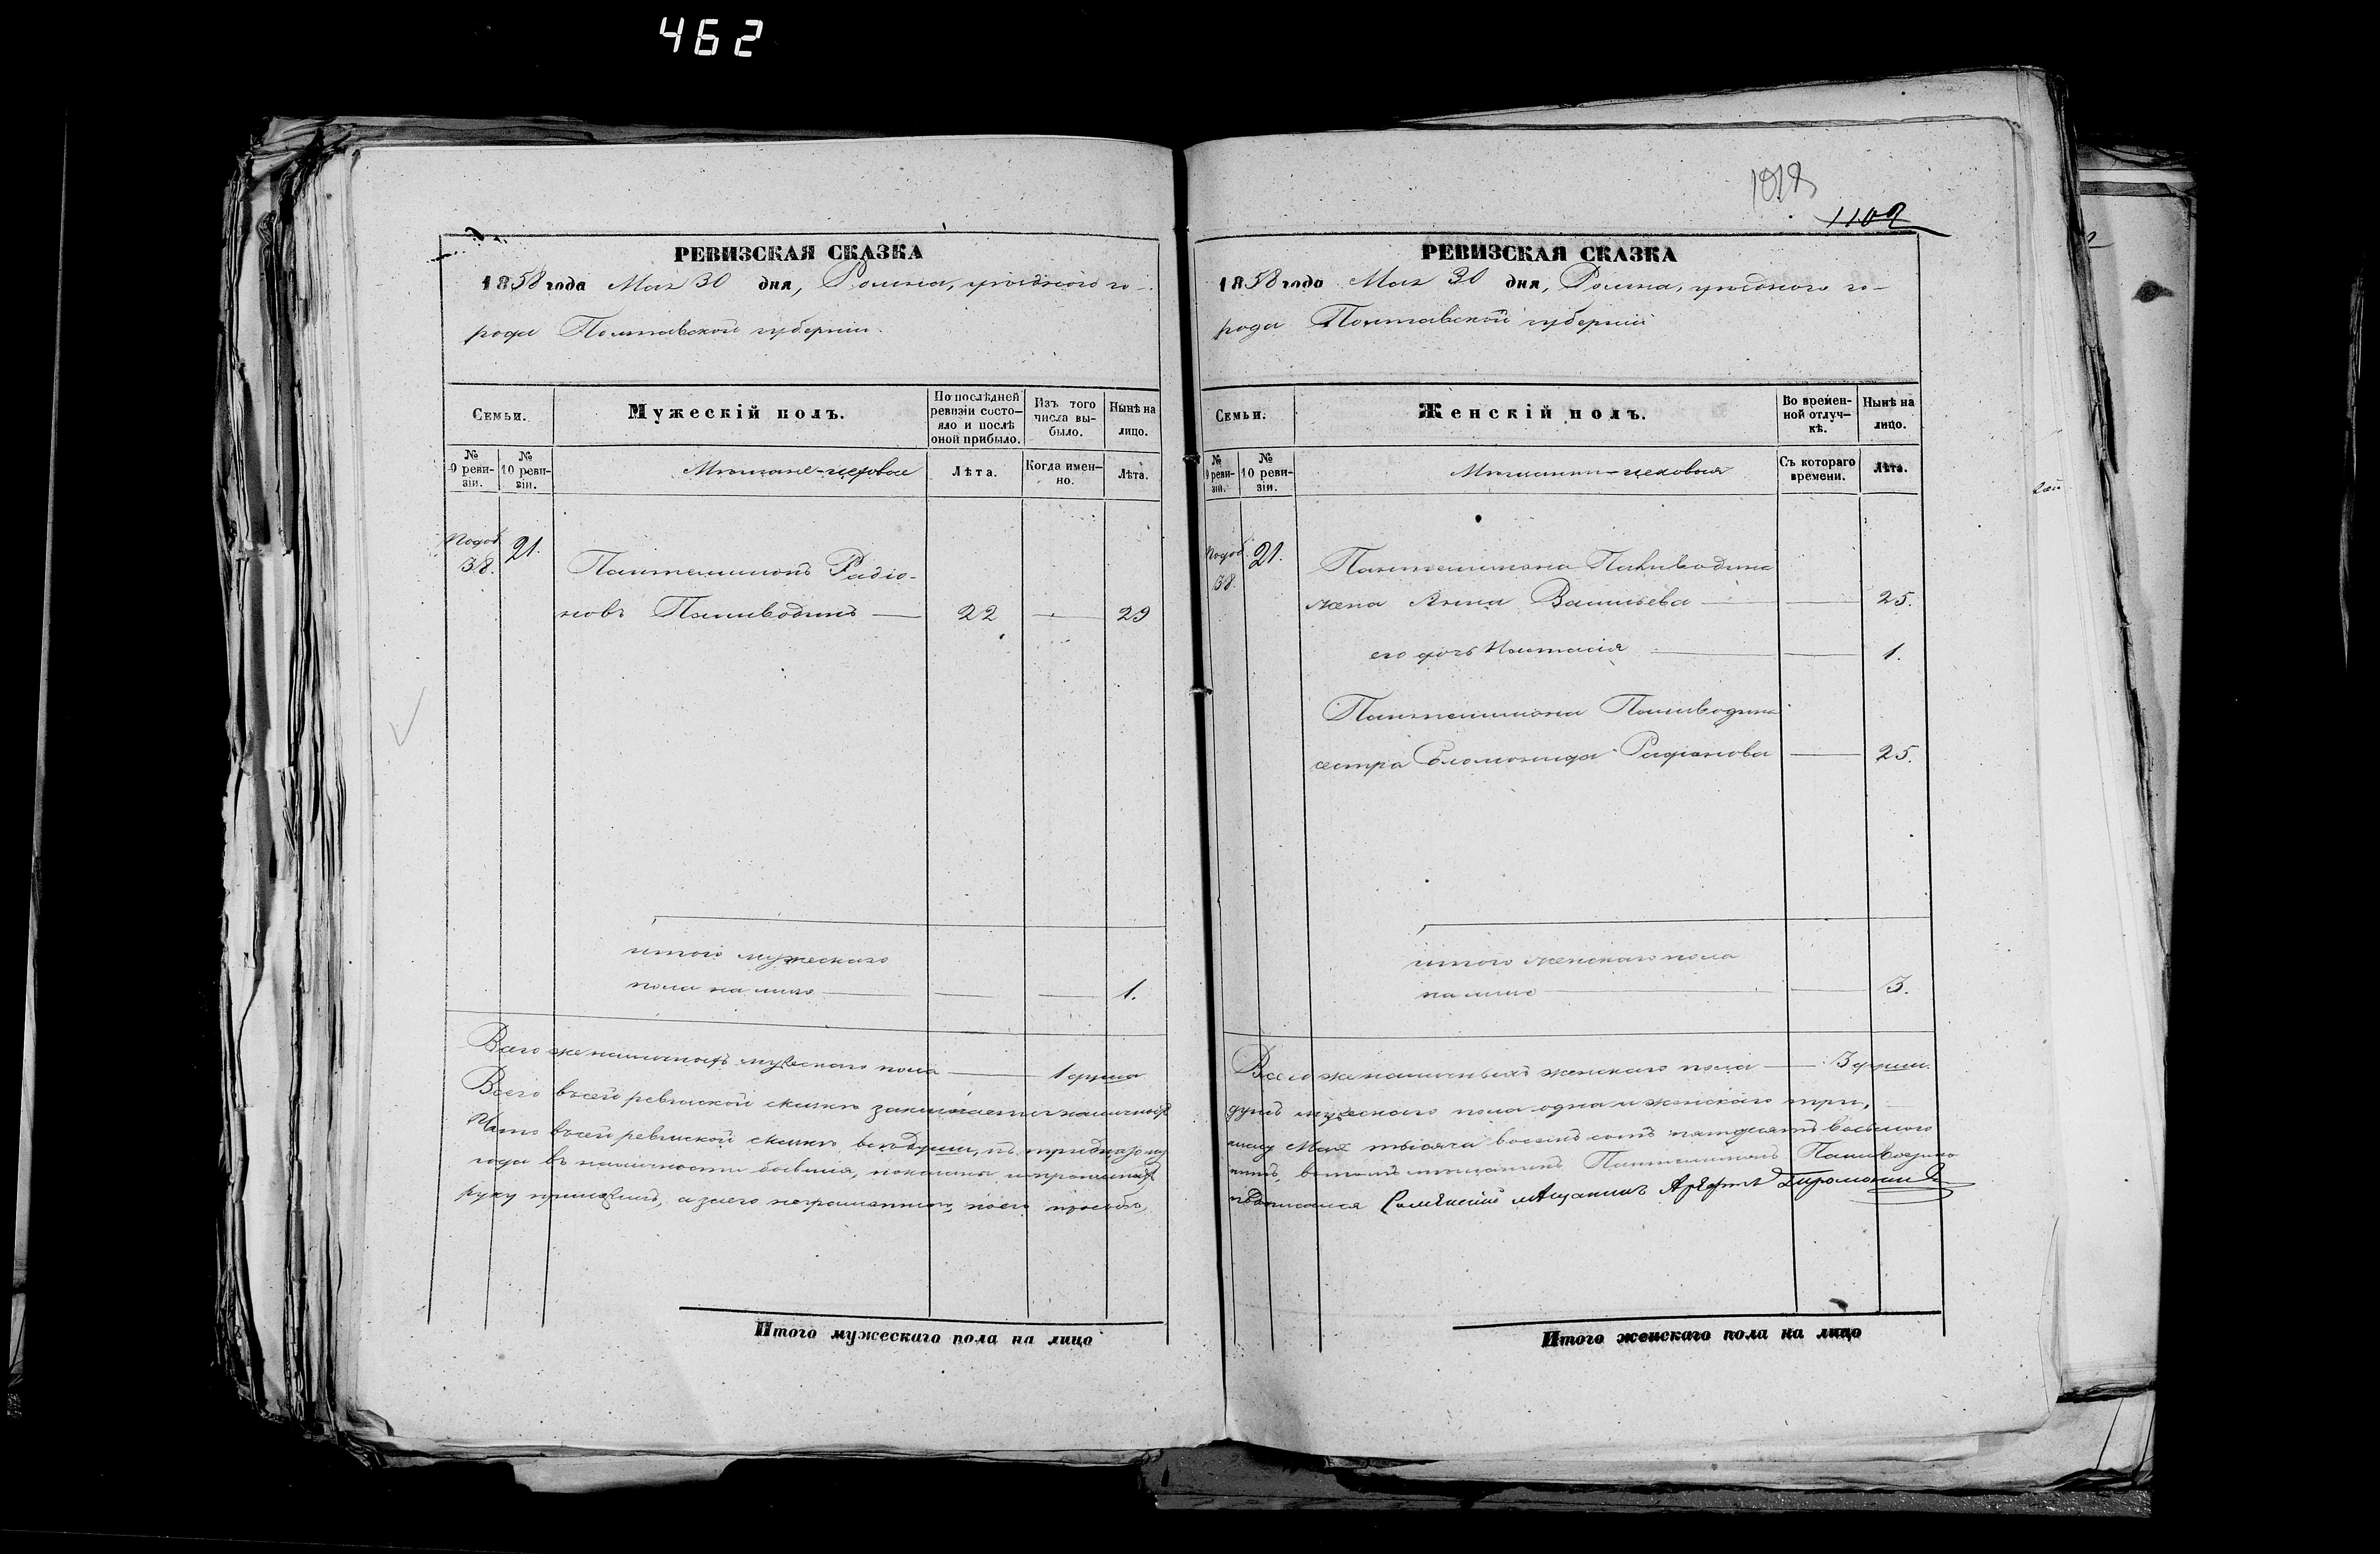 462
1018
1102
РЕВИЗСКАЯ СКАЗКА
1858 года Мая 30 дня, Ромна, уѣзднаго го-
рода Полтавской губерніи.
Семьи.
Мужескій полъ.
По послѣдней ревизіи состояло и послѣ оной прибыло.
Изъ того числа выбыло.
Нынѣ на лицо.
№ 9 ревизіи.
№ 10 ревизіи.
Мѣщане-цеховые
Лѣта.
Когда именно.
Лѣта.
38. 21.
Пантелимонъ Радіо-
новъ Паливодинъ — 22 — 29
итого мужескаго
пола на лицо — — — 1.
Всего же наличныхъ мужескаго пола — 1 душа
Всего въ сей ревизской сказкѣ заключается наличныхъ
Что въ сей ревизской сказкѣ всѣ души, къ тридцатому
года въ наличности бывшія, показаны
руку приложилъ, а за него неграмотнаго, по его просьбѣ,
Итого мужескаго пола на лицо
РЕВИЗСКАЯ СКАЗКА
1858 года Мая 30 дня, Ромна, уѣзднаго го-
рода Полтавской губерніи
Семьи.
Женскій полъ.
Во временной отлучкѣ.
Нынѣ на лицо.
№ 9 ревизіи.
№ 10 ревизіи.
Мѣщанки-цеховыя
Съ котораго времени.
Лѣта.
38. 21.
Пантелимона Паливодина
жена Анна Васильева — — 25.
его дочь Настасія — — 1.
Пантелимона Паливодина
сестра Соломонида Радіонова — 25.
итого женскаго пола
на лицо — — 3.
Всего же наличныхъ женскаго пола — 3 души.
душъ мужескаго пола одна и женскаго три,
числу Мая тысяча восемь сотъ пятьдесятъ восьмого
въ томъ мѣщанинъ Пантелимонъ Паливодинъ
подписался Роменскій мѣщанинъ
Итого женскаго пола на лицо